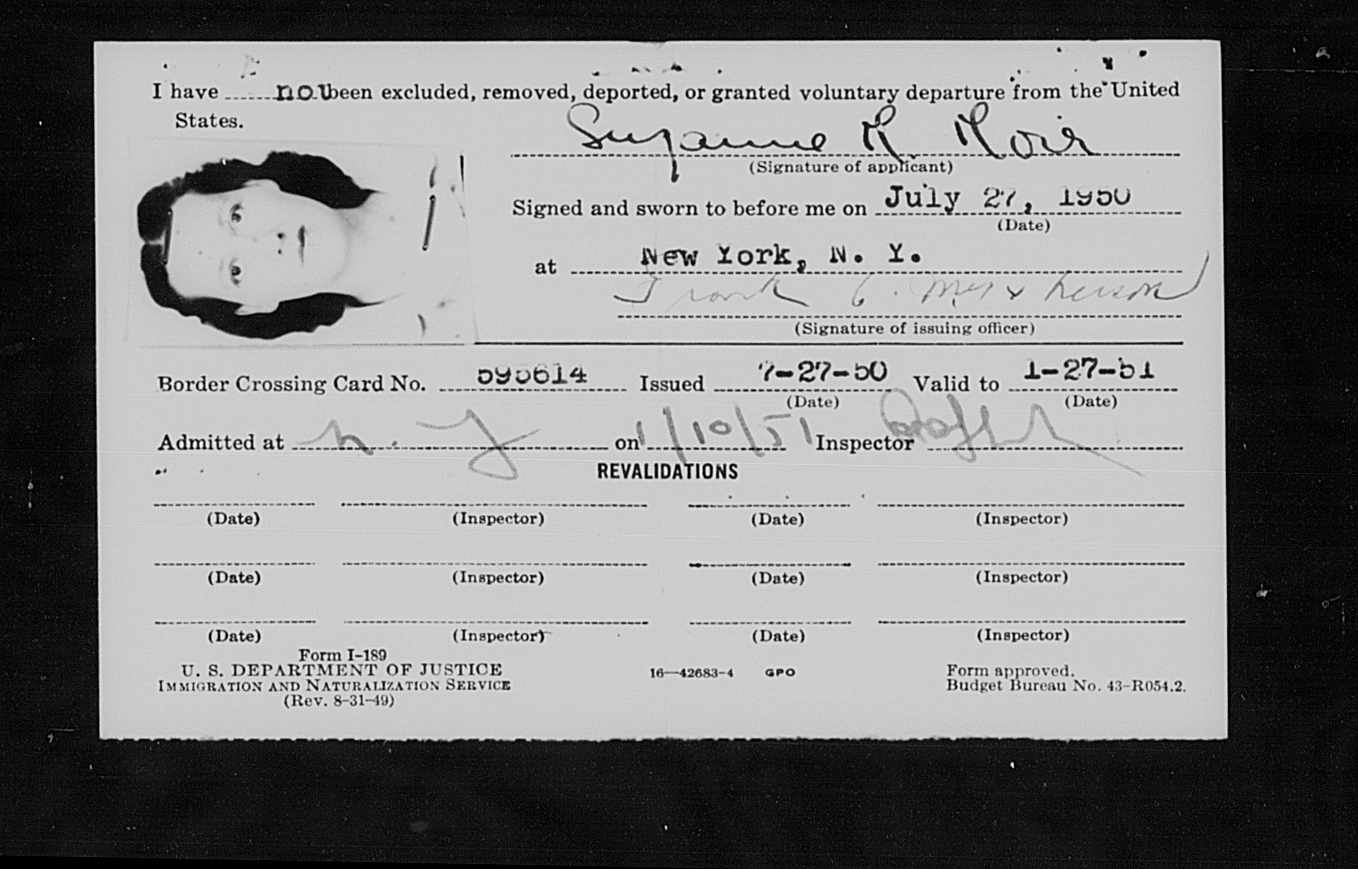 I have not been excluded, removed, deported, or granted voluntary departure from the United
States.
Suzanne
(Signature of applicant)
Signed and sworn to before me on July 27, 1950
(Date)
at New York, N. Y.
Frank
(Signature of issuing officer)
Border Crossing Card No. 595614 Issued 7-27-50 Valid to 1-27-51
(Date) (Date)
Admitted at N. Y on 1/10/51 Inspector
REVALIDATIONS
(Date) (Inspector) (Date) (Inspector)
(Date) (Inspector) (Date) (Inspector)
(Date) (Inspector) (Date) (Inspector)
Form I-189
U. S. DEPARTMENT OF JUSTICE 16—42683-4 GPO Form approved.
IMMIGRATION AND NATURALIZATION SERVICE Budget Bureau No. 43-R054.2.
(Rev. 8-31-49)